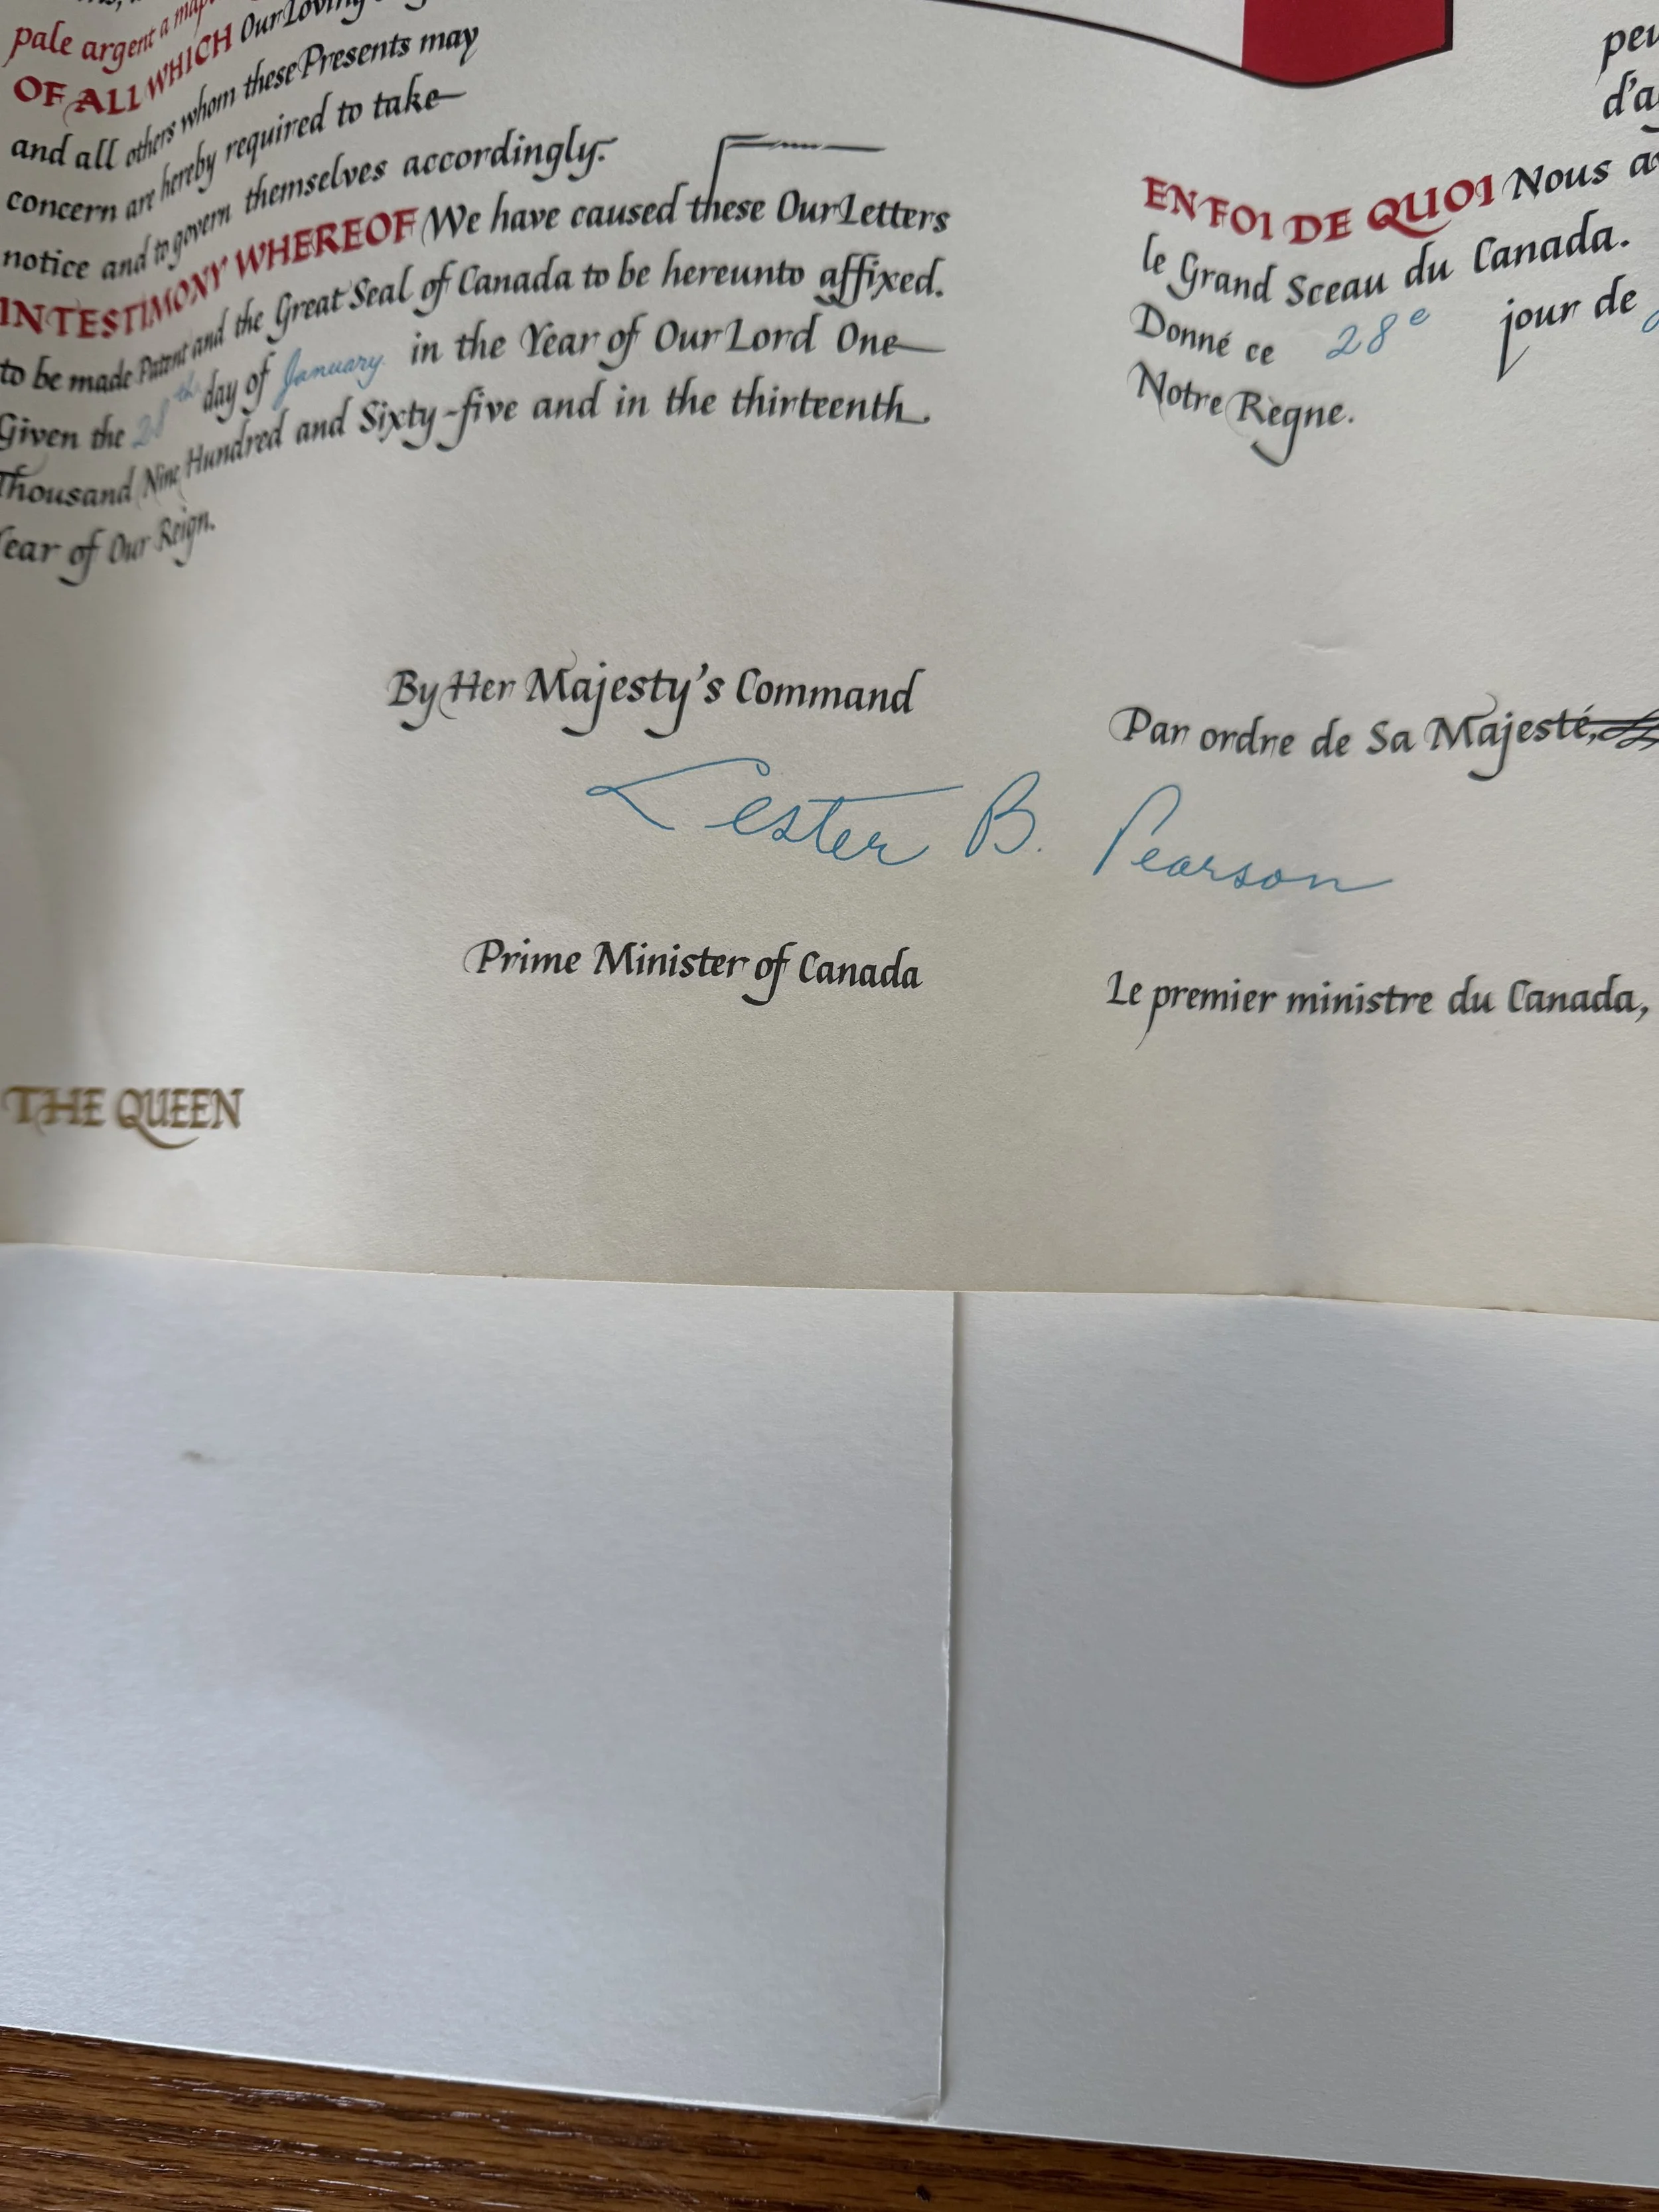 pale argent a
OF ALL WHICH Our Loving
and all others whom these Presents may
concern are hereby required to take
notice and to govern themselves accordingly.
IN TESTIMONY WHEREOF We have caused these Our Letters
to be made Patent and the Great Seal of Canada to be hereunto affixed.
Given the 28th day of January in the Year of Our Lord One
Thousand Nine Hundred and Sixty-five and in the thirteenth
ear of Our Reign.
By Her Majesty's Command
Prime Minister of Canada
THE QUEEN
peu
d'a
EN FOI DE QUOI Nous a
le Grand Sceau du Canada.
Donné ce 28e jour de
Notre Règne.
Par ordre de Sa Majesté,
Lester B. Pearson
Le premier ministre du Canada,